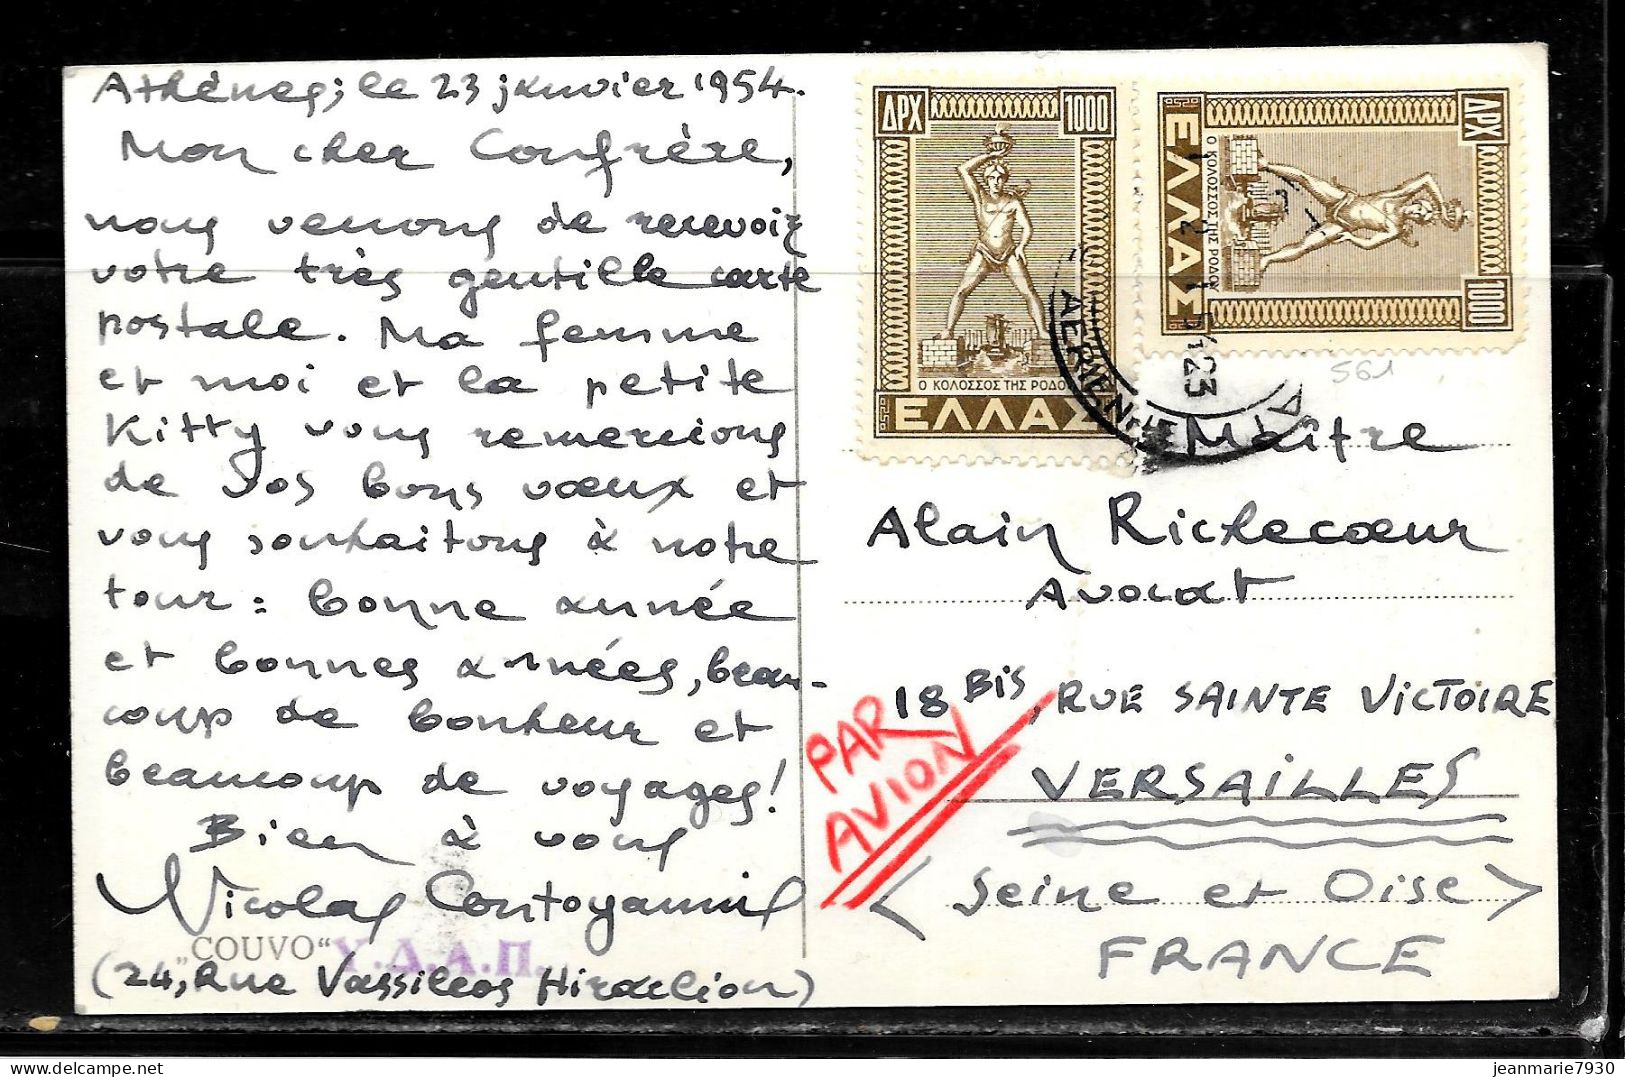 Athènes, le 23 janvier 1954.
Mon cher Confrère,
nous venons de recevoir
votre très gentille carte
postale. Ma femme
et moi et la petite
Kitty vous remercions
de vos bons vœux et
vous souhaitons à notre
tour : bonne année
et bonnes années, beau-
coup de bonheur et
beaucoup de voyages!
Bien à vous
Nicolas Contoyannis
„COUVO“ Υ.Δ.Α.Π.
(24, Rue Vassileos Hiraclion)
ΔΡΧ 1000
Ο ΚΟΛΟΣΣΟΣ ΤΗΣ ΡΟΔΟΥ
ΕΛΛΑΣ
ΔΡΧ 1000
Ο ΚΟΛΟΣΣΟΣ ΤΗΣ ΡΟΔΟΥ
ΕΛΛΑΣ
54 23
561
Maître
Alain Richecœur
Avocat
18 Bis, RUE SAINTE VICTOIRE
PAR
AVION
VERSAILLES
(Seine et Oise)
FRANCE
jeanmarie7930